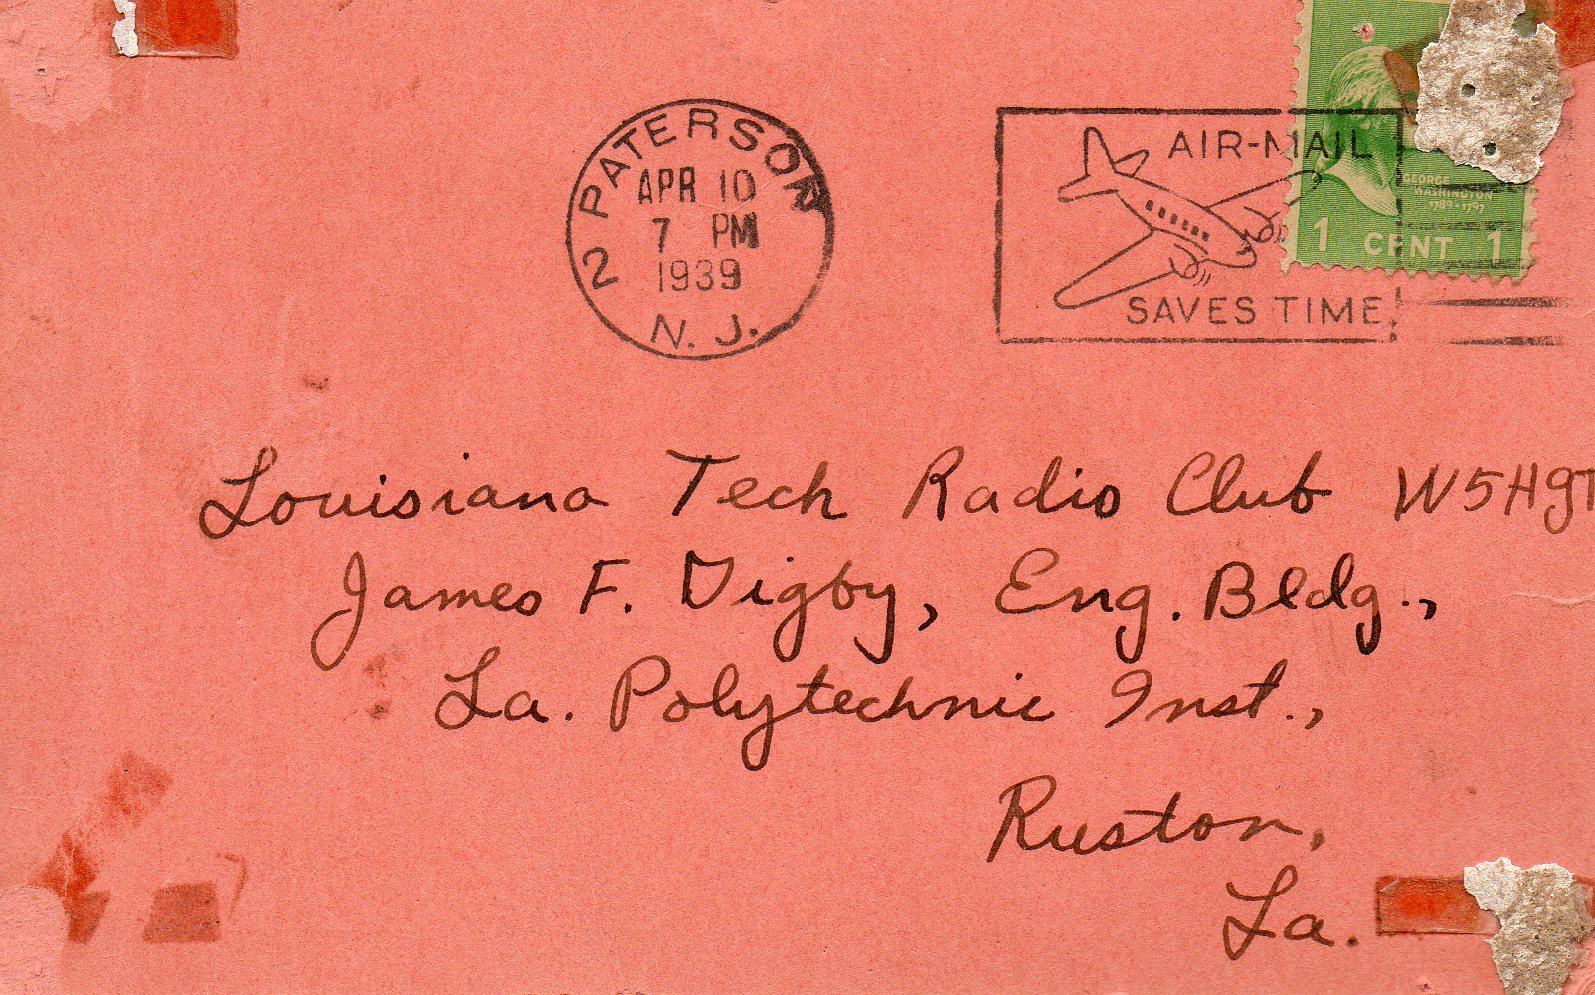 2 PATERSON
APR 10
7 PM
1939
N. J.
AIR-MAIL
SAVES TIME
GEORGE
WASHINGTON
1789-1797
1 CENT 1
Louisiana Tech Radio Club W5HGT
James F. Digby, Eng. Bldg.,
La. Polytechnic Inst.,
Ruston,
La.